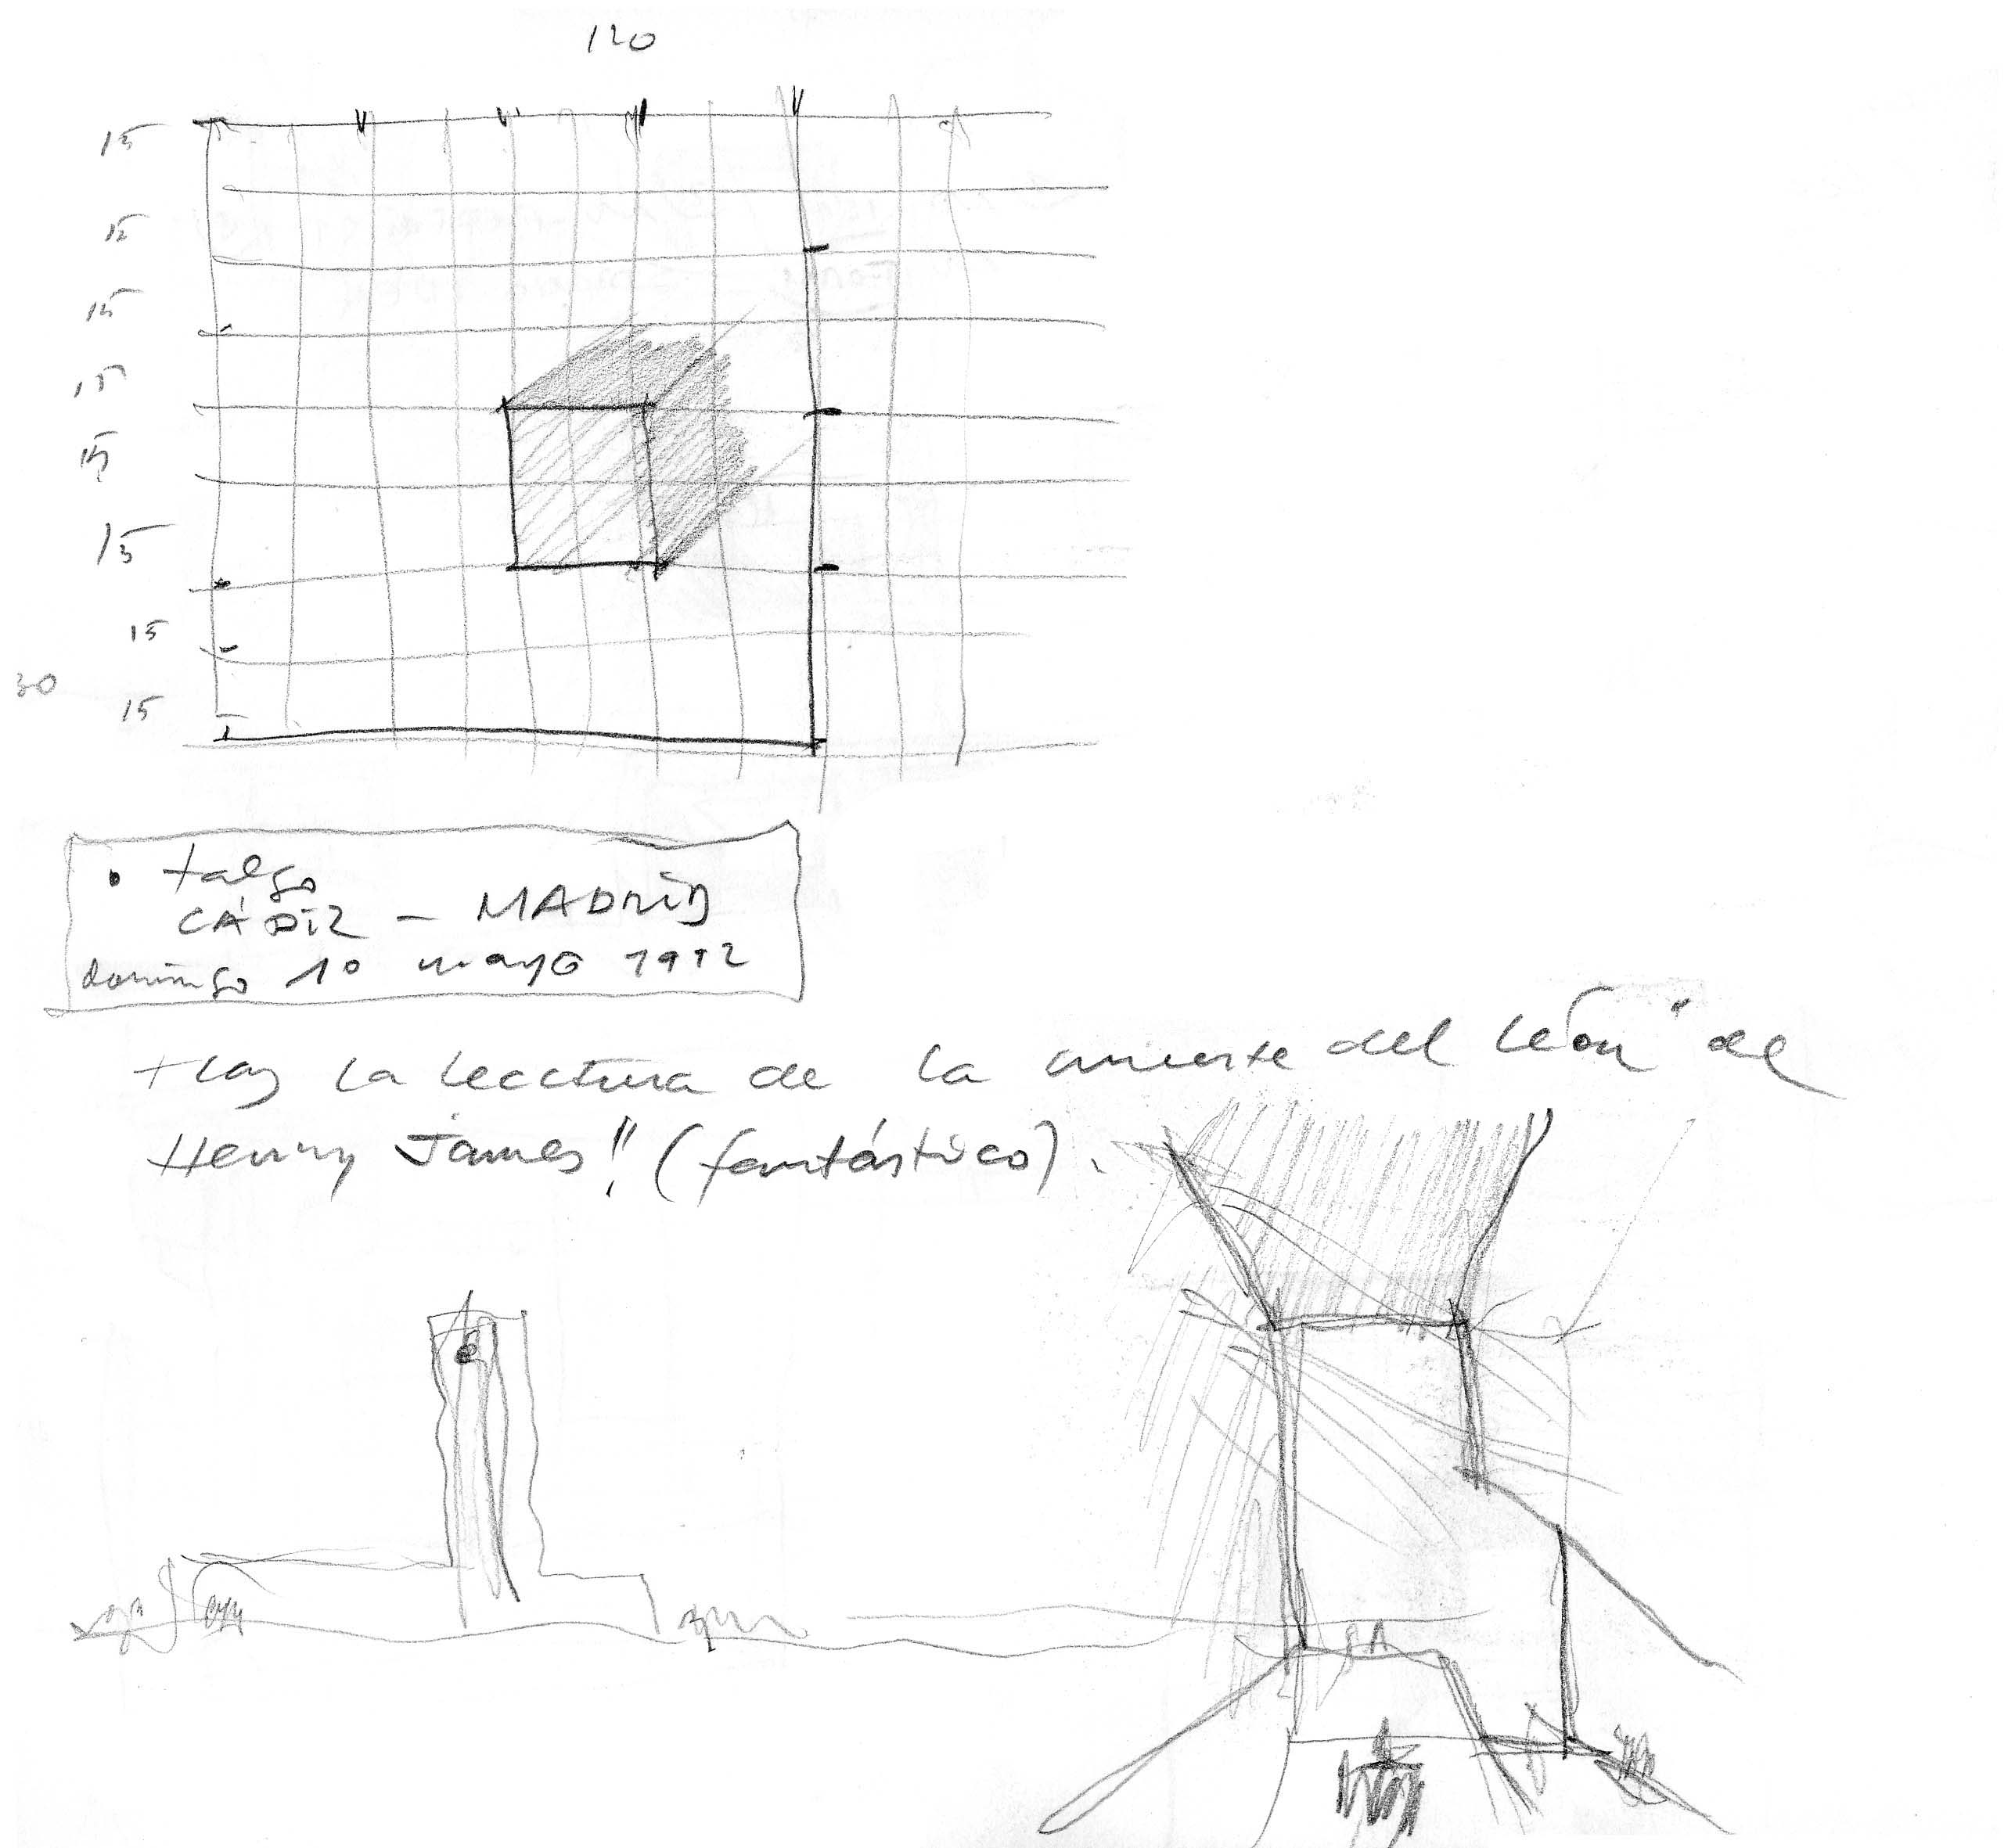 120
15
15
15
15
15
15
15
30
15
• talgo
CÁDIZ - MADRID
domingo 1º mayo 1992
tras la lectura de la muerte del león" de
Henry James!! (fantástico).
A